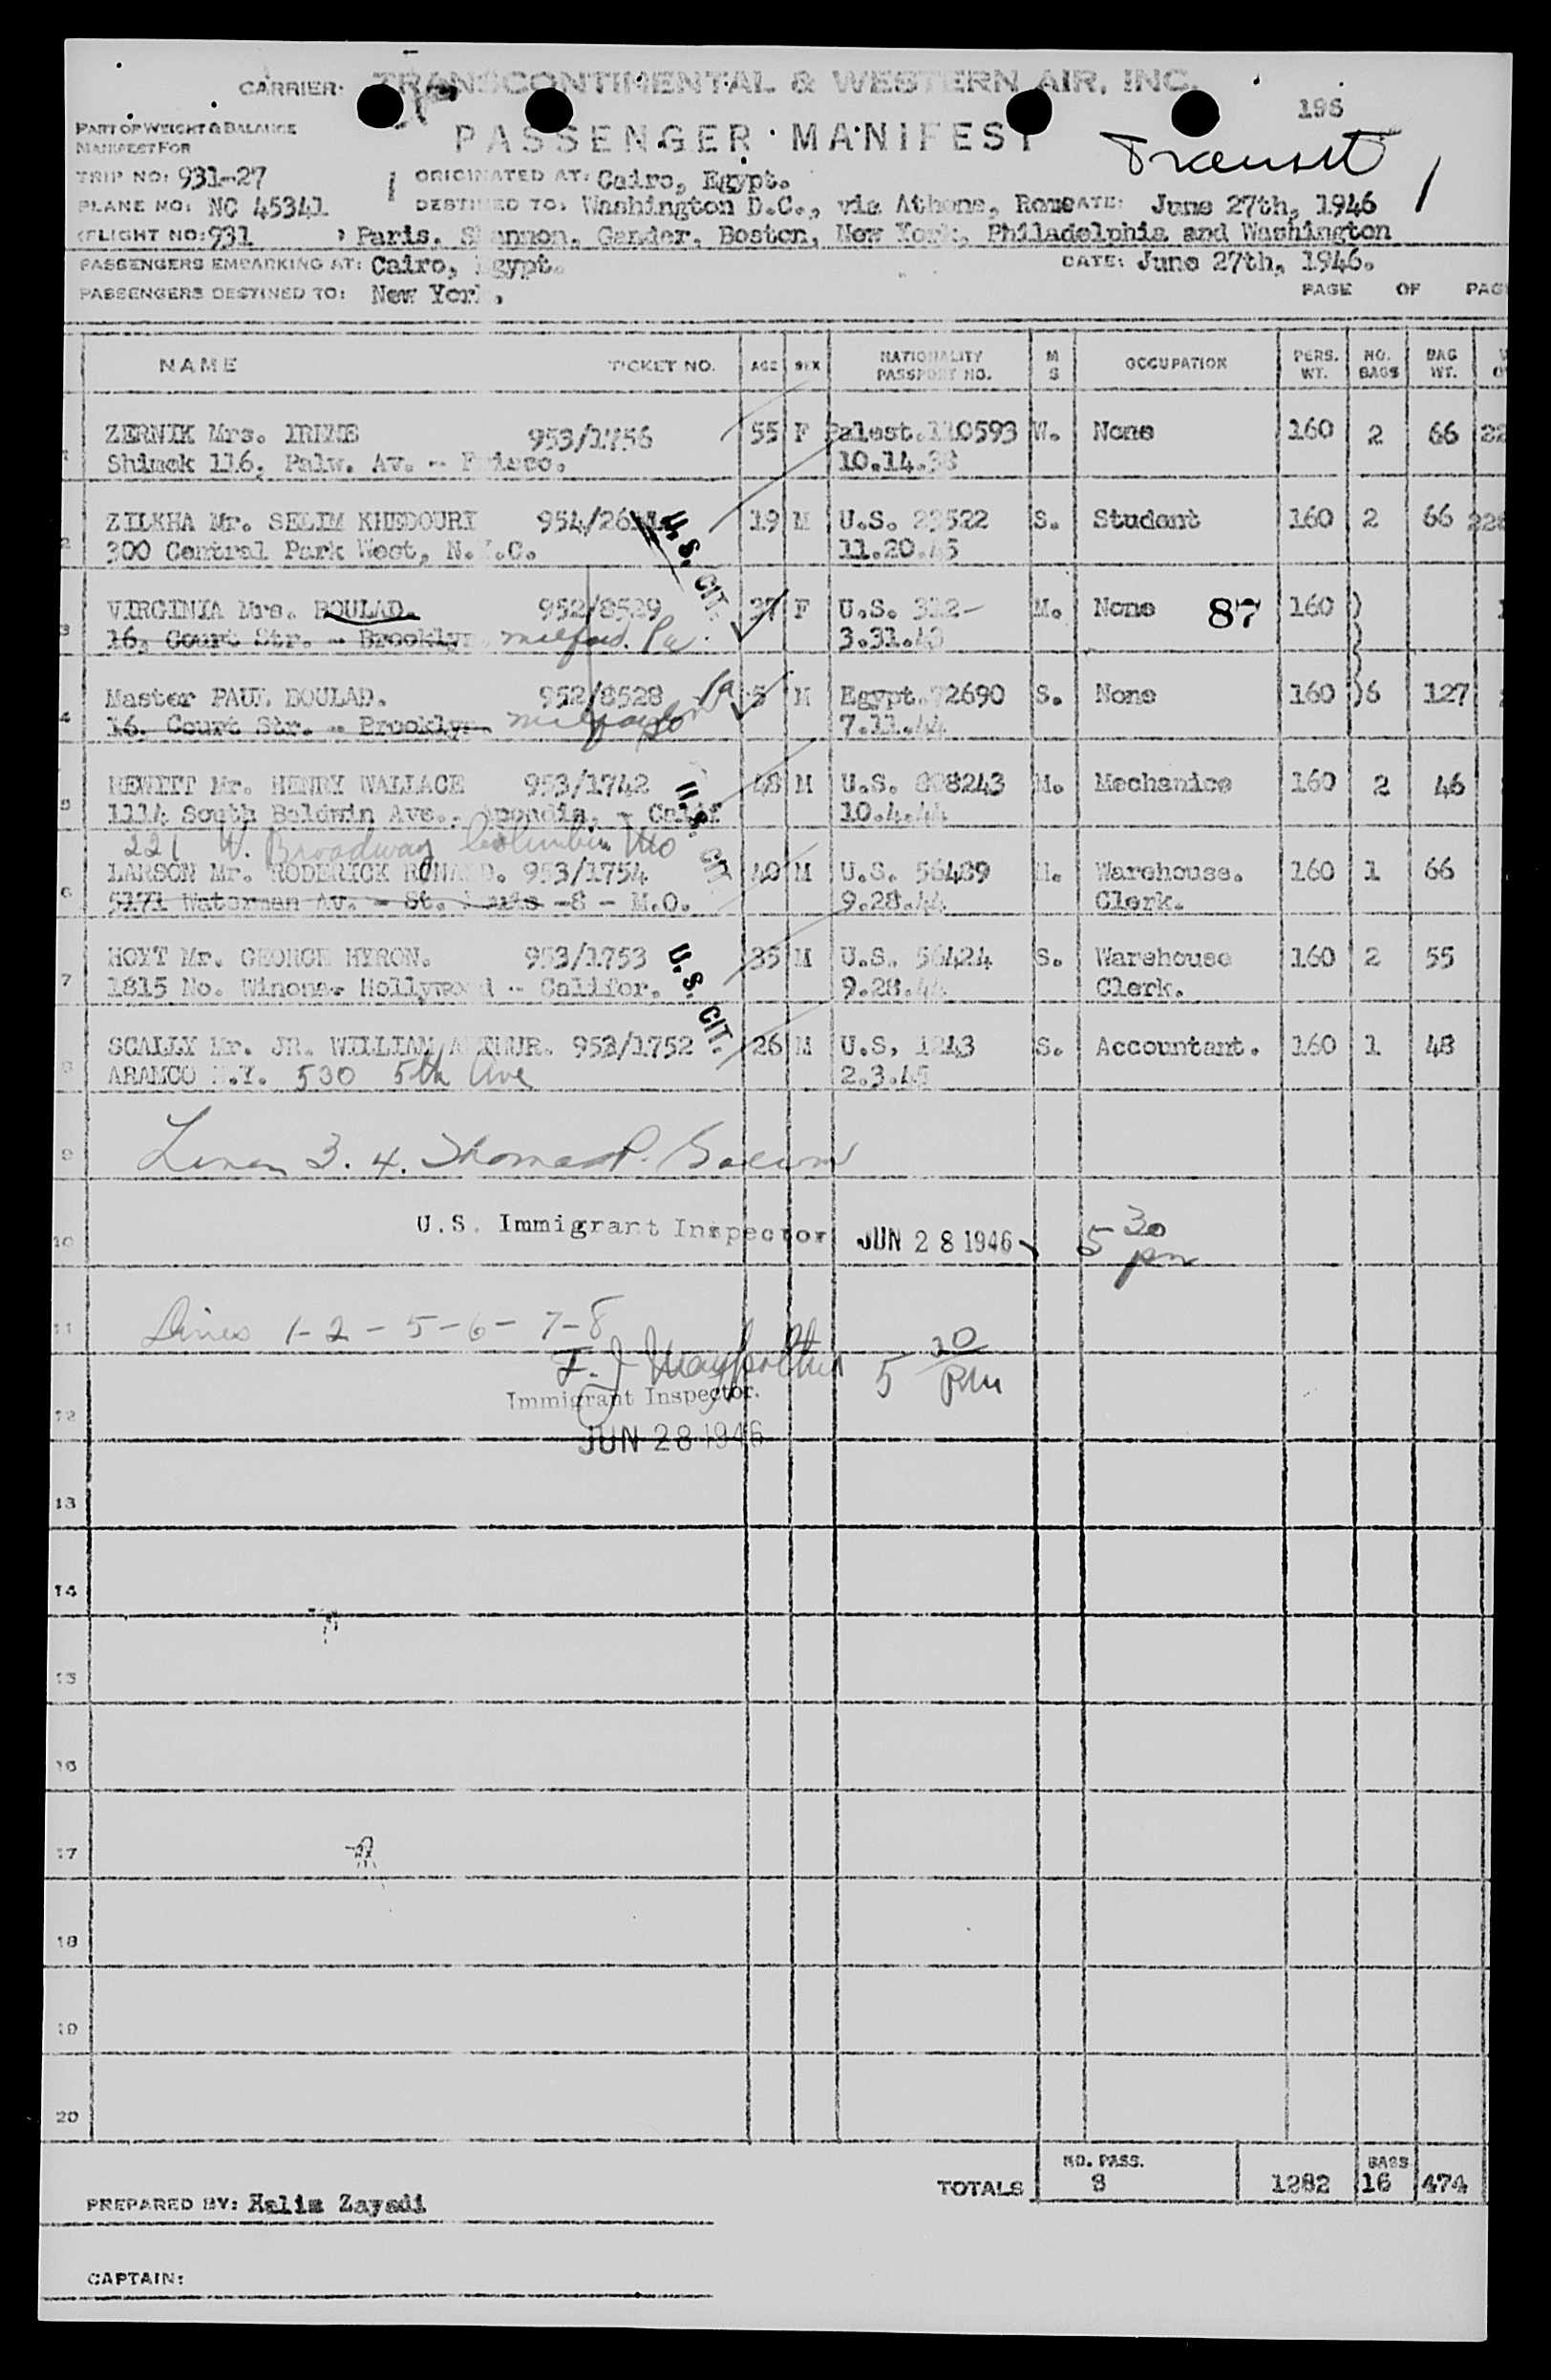 CARRIER: TRANSCONTINENTAL & WESTERN AIR, INC.
196
PASSENGER MANIFEST
Transit
PART OF WEIGHT & BALANCE
MANIFEST FOR
TRIP NO: 931-27 ORIGINATED AT: Cairo, Egypt.
PLANE NO: NC 45341 DESTINED TO: Washington D.C., via Athens, Rome DATE: June 27th, 1946
(FLIGHT NO: 931 ) Paris, Shannon, Gander, Boston, New York, Philadelphia and Washington
PASSENGERS EMBARKING AT: Cairo, Egypt. DATE: June 27th, 1946.
PASSENGERS DESTINED TO: New York, PAGE OF PAG
NAME TICKET NO. AGE SEX NATIONALITY PASSPORT NO. M S OCCUPATION PERS. WT. NO. BAGS BAG WT.
1 ZERNIK Mrs. IRENE 953/1756 55 F Palest. 110593 W. None 160 2 66 22
Shimek 116, Palw. Av. - Frisco. 10.14.38
2 ZILKHA Mr. SELIM KHEDOURI 954/26 U.S. CIT. 19 M U.S. 23522 S. Student 160 2 66 226
300 Central Park West, N.Y.C. 11.20.45
3 VIRGINIA Mrs. BOULAD. 952/8529 37 F U.S. 312- M. None 87 160
16, Court Str. - Brooklyn milford. Pa 3.31.43
4 Master PAUL BOULAD. 952/8528 Pa 5 M Egypt. 72690 S. None 160 6 127
16, Court Str. - Brooklyn 7.11.44
5 HEWITT Mr. HENRY WALLACE 953/1742 U.S. CIT. 48 M U.S. 808243 M. Mechanics 160 2 46
1114 South Baldwin Ave., - Calif 10.4.44
221 W. Broadway Columbia Mo
6 LARSON Mr. RODERICK RONALD. 953/1754 40 M U.S. 56489 M. Warehouse. 160 1 66
5171 Waterman Av. - St. Louis -8 - M.O. 9.28.44 Clerk.
7 HOYT Mr. GEORGE MYRON. 953/1753 U.S. CIT. 35 M U.S. 56424 S. Warehouse 160 2 55
1815 No. Winona- Hollywood - Califor. 9.28.44 Clerk.
8 SCALLY Mr. JR. WILLIAM ARTHUR. 953/1752 26 M U.S. 1243 S. Accountant. 160 1 48
ARAMCO N.Y. 530 5th Ave 2.3.45
9 Lines 3. 4. Thomas P.
10 U.S. Immigrant Inspector JUN 28 1946 5 30 pm
11 Lines 1-2-5-6-7-8
F. J. 5 20 PM
12 Immigrant Inspector.
JUN 28 1946
13
14
15
16
17
18
19
20
TOTALS NO. PASS. 8 1282 BAGS 16 474
PREPARED BY: Halim Zayadi
CAPTAIN: